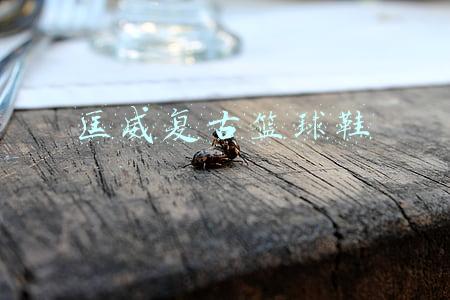 匡威复古篮球鞋